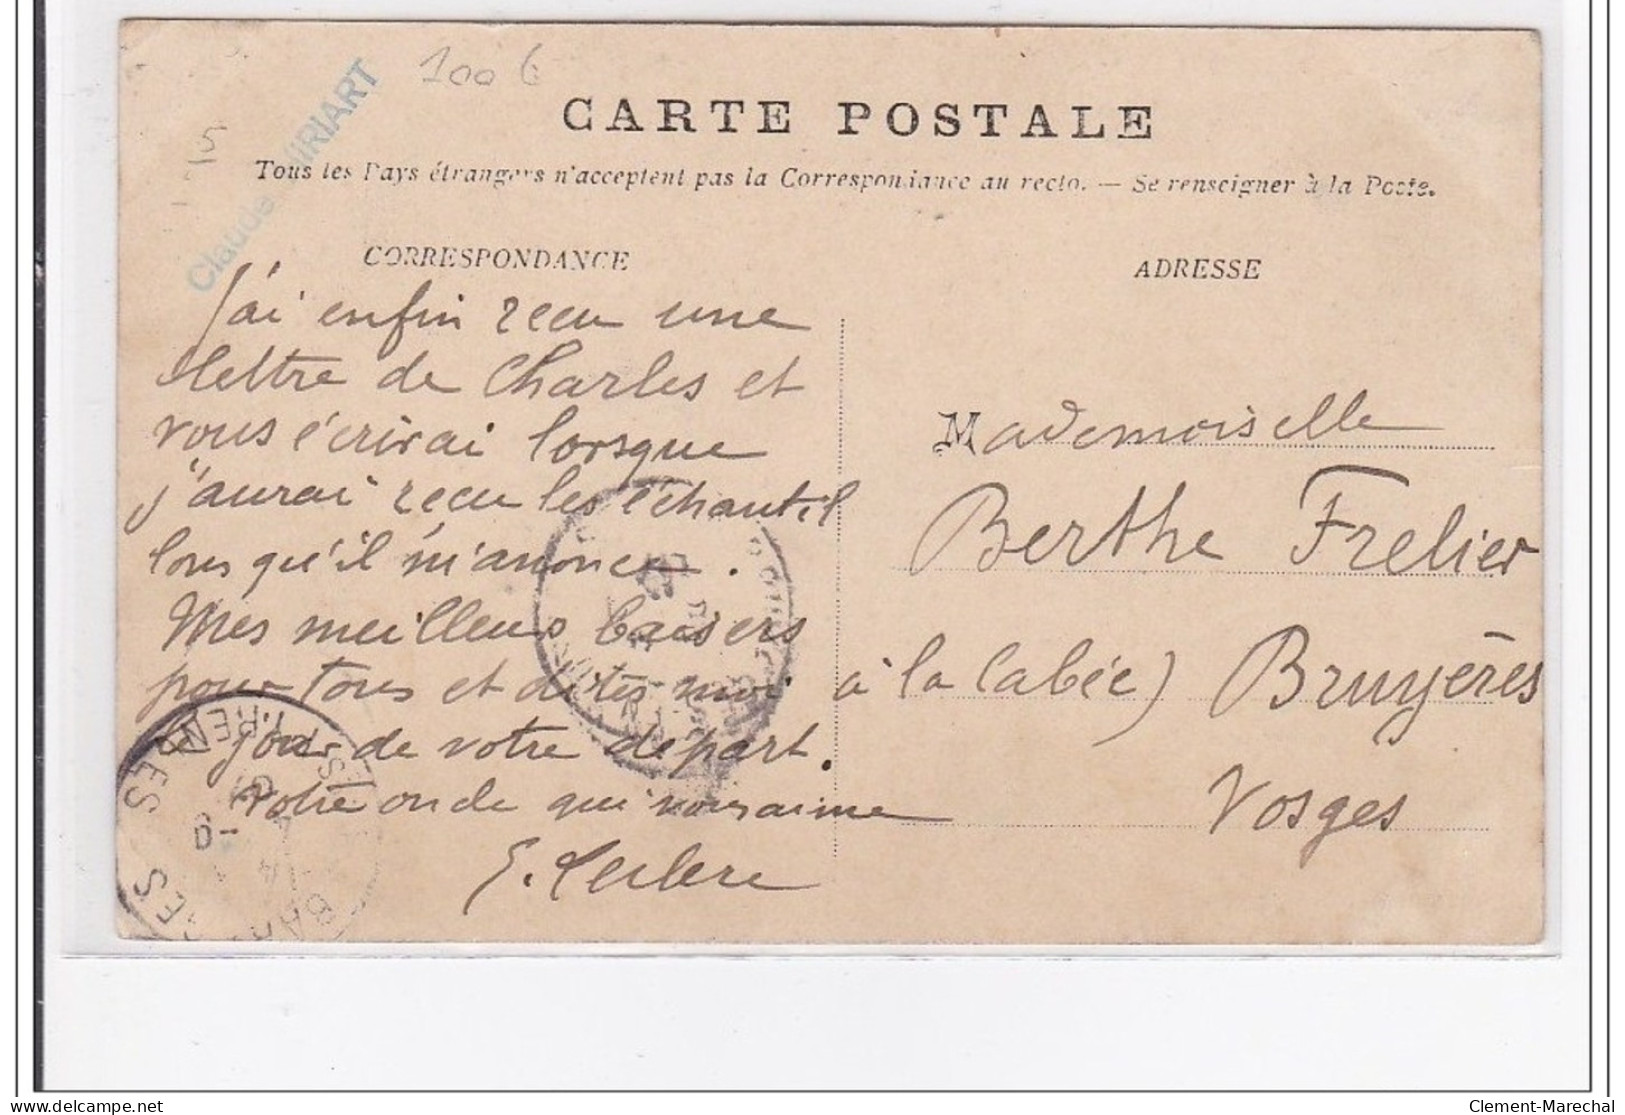 100 6
5
Claude VIRIART
CARTE POSTALE
Tous les Pays étrangers n'acceptent pas la Correspondance au recto. — Se renseigner à la Poste.
CORRESPONDANCE
J'ai enfin recu une
lettre de Charles et
vous écrirai lorsque
j'aurai recu les échantil
lons qu'il m'anonce.
Mes meilleurs baisers
pour tous et dites moi
le jour de votre départ.
Votre oncle qui vous aime
E. Leclerc
ADRESSE
Mademoiselle
Berthe Frelier
à la Cabée) Bruyères
Vosges
Clement-Marechal